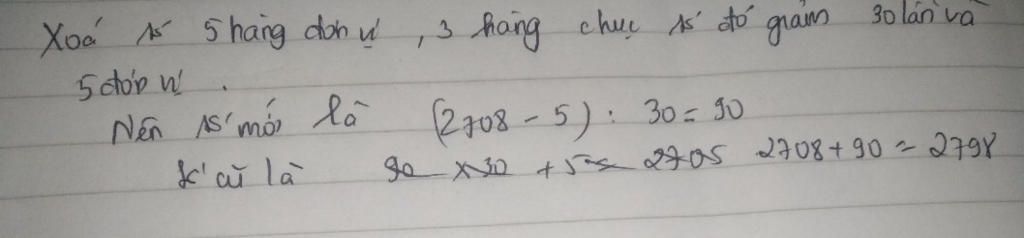 Xoá số 5 hàng đơn vị, 3 hàng chục số đó giảm 30 lần và
5 đơn vị.
Nên số mới là (2708 - 5) : 30 = 90
Số cũ là 90 x 30 + 5 = 2705 2708 + 90 = 2798